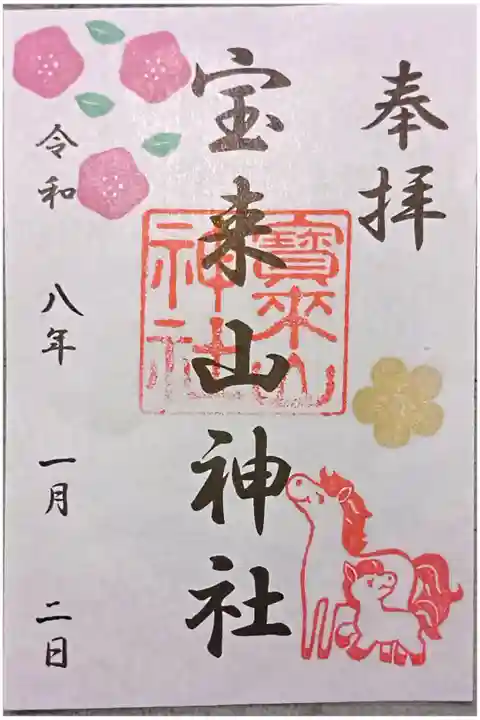 奉拝
宝来山神社
寶来山
神社
令和八年一月二日